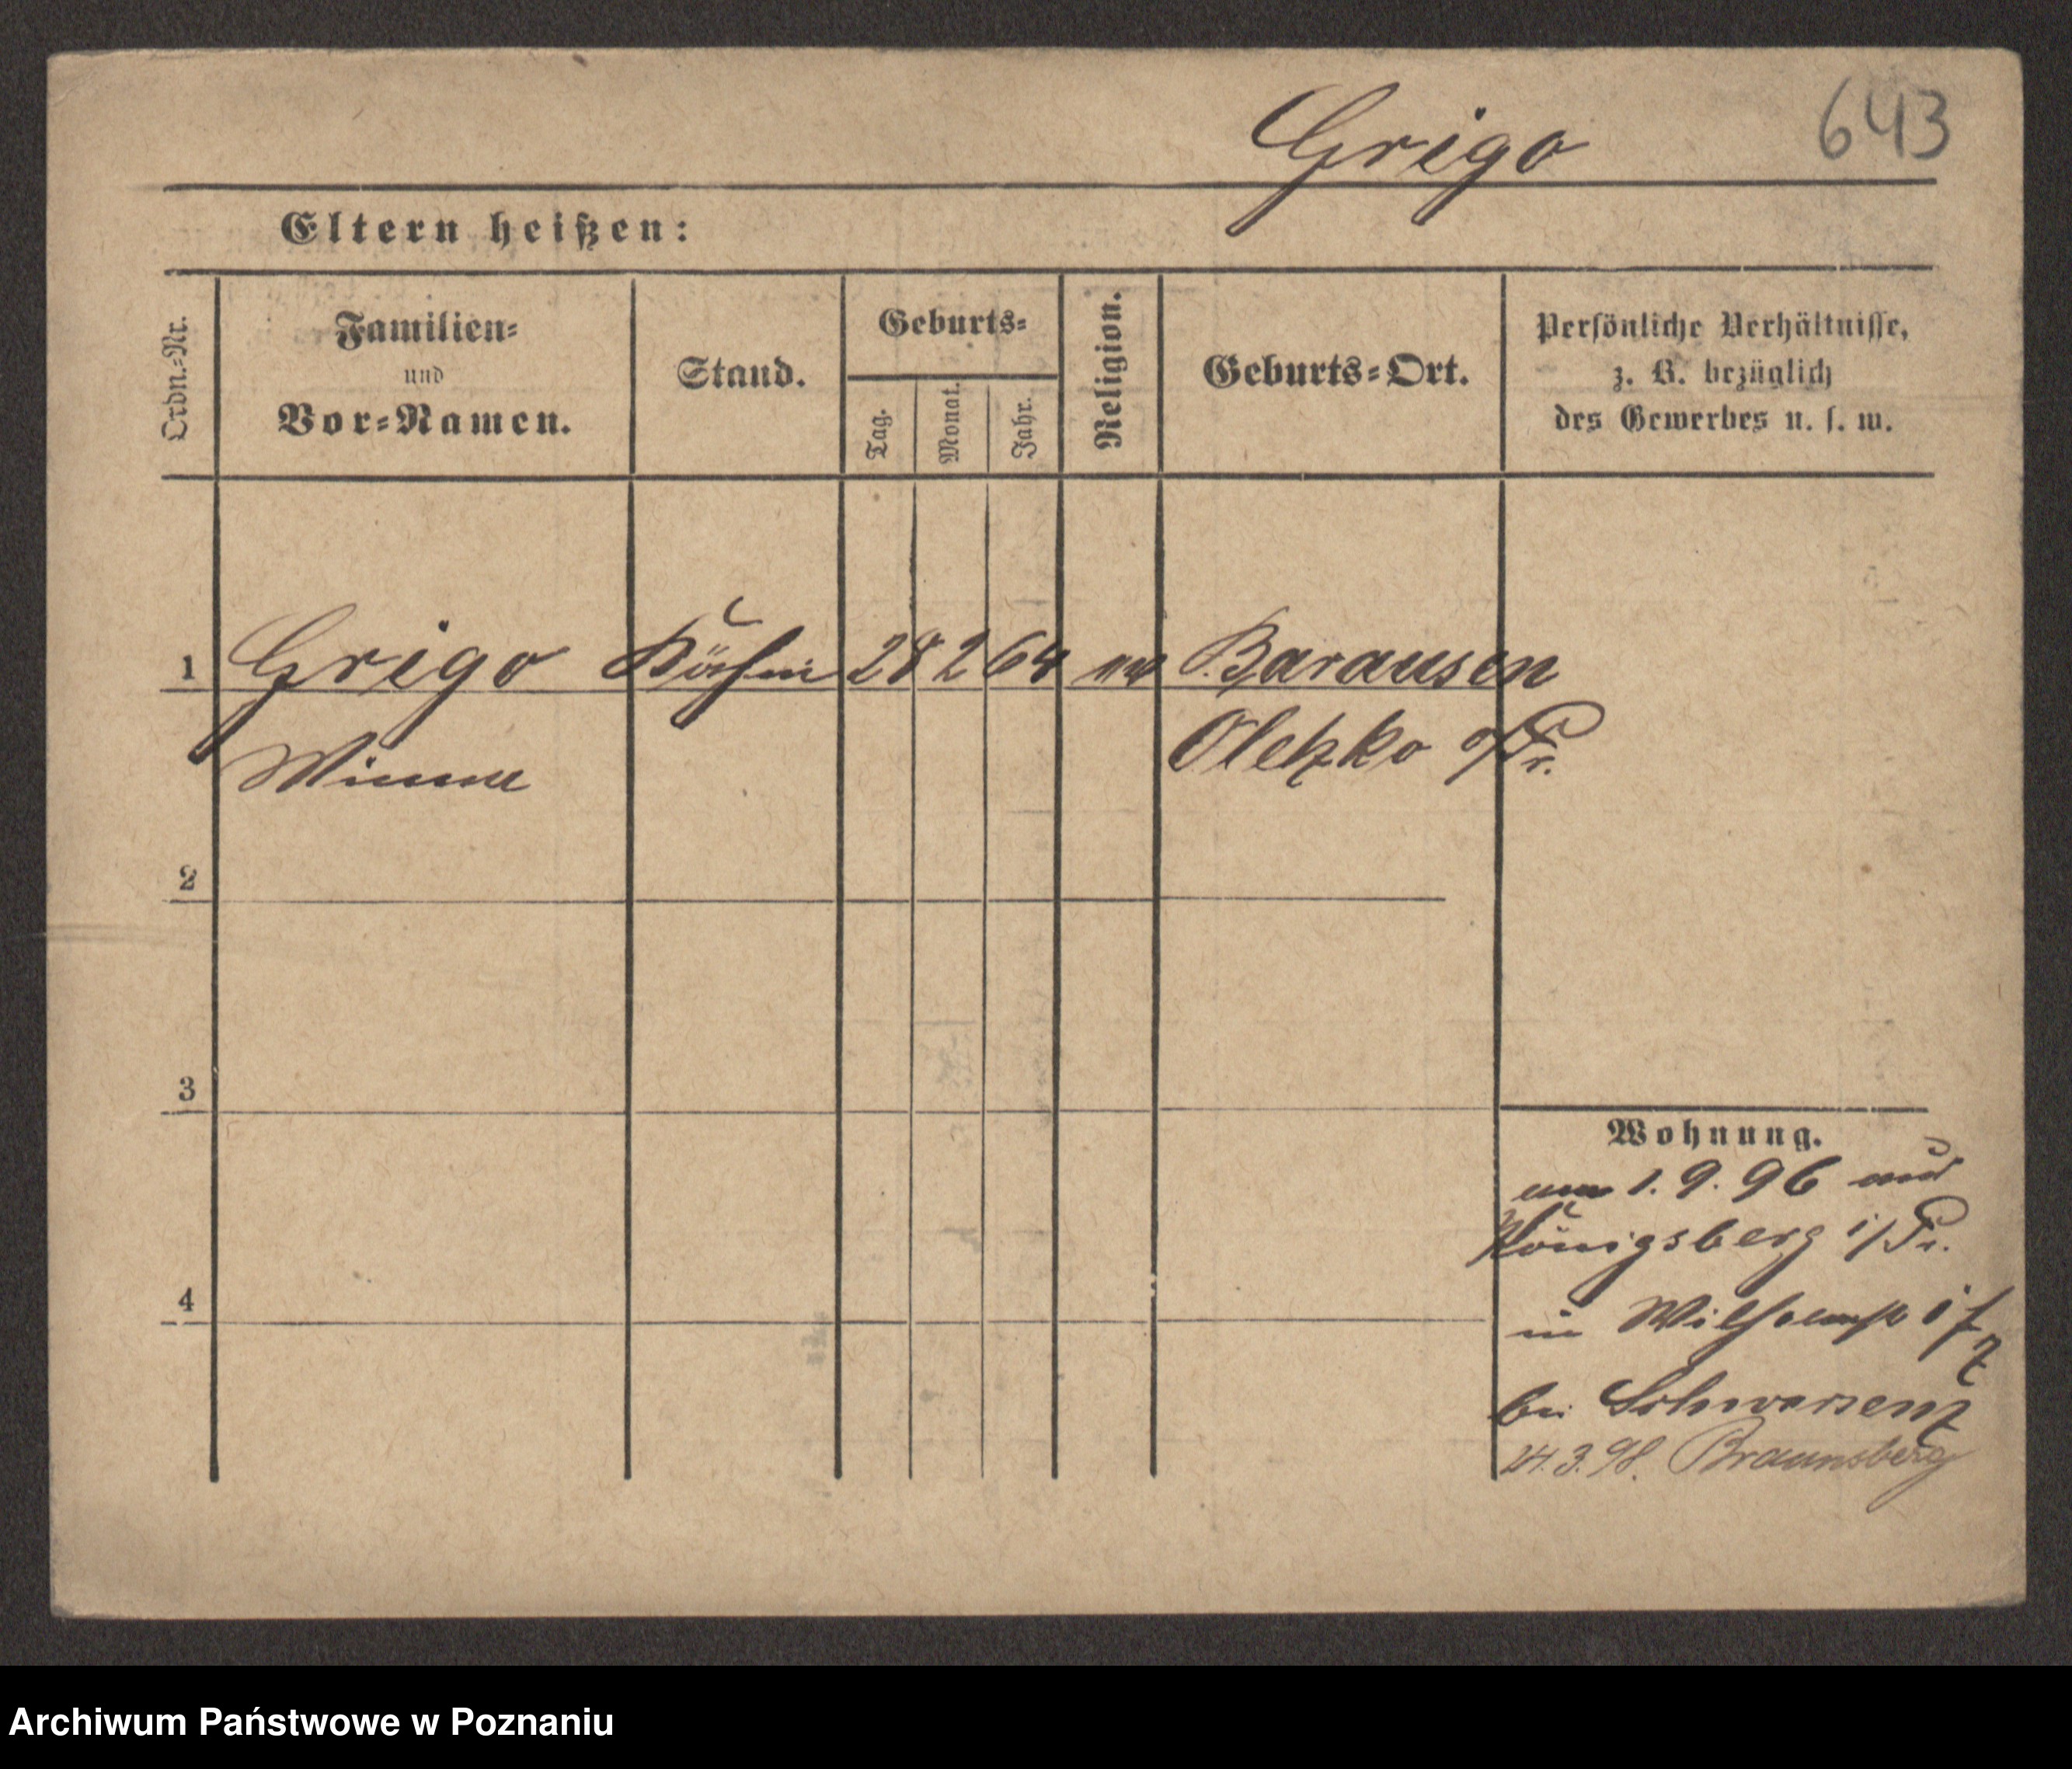 643
Grigo
Eltern heißen:
Ordn.-Nr.
Familien-
und
Vor-Namen.
Stand.
Geburts-
Tag.
Monat.
Jahr.
Religion.
Geburts-Ort.
Persönliche Verhältnisse,
z. B. bezüglich
des Gewerbes u. s. w.
1 Grigo Köchin 28 2 64 Barausen
Oletzko o/Pr.
2
3
4
Wohnung.
am 1. 9. 96 aus
Königsberg i/Pr.
in
bei Schwarsenz
24.3.98. Braunsberg
Archiwum Państwowe w Poznaniu